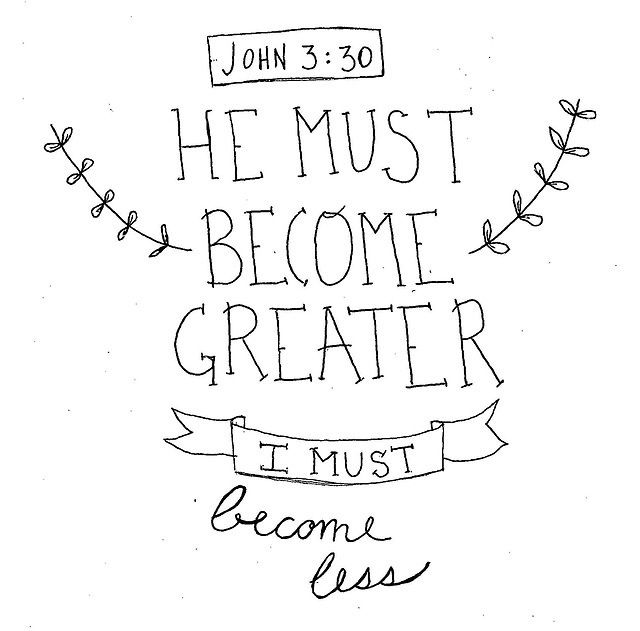 JOHN 3:30
HE MUST
BECOME
GREATER
I MUST
become
less